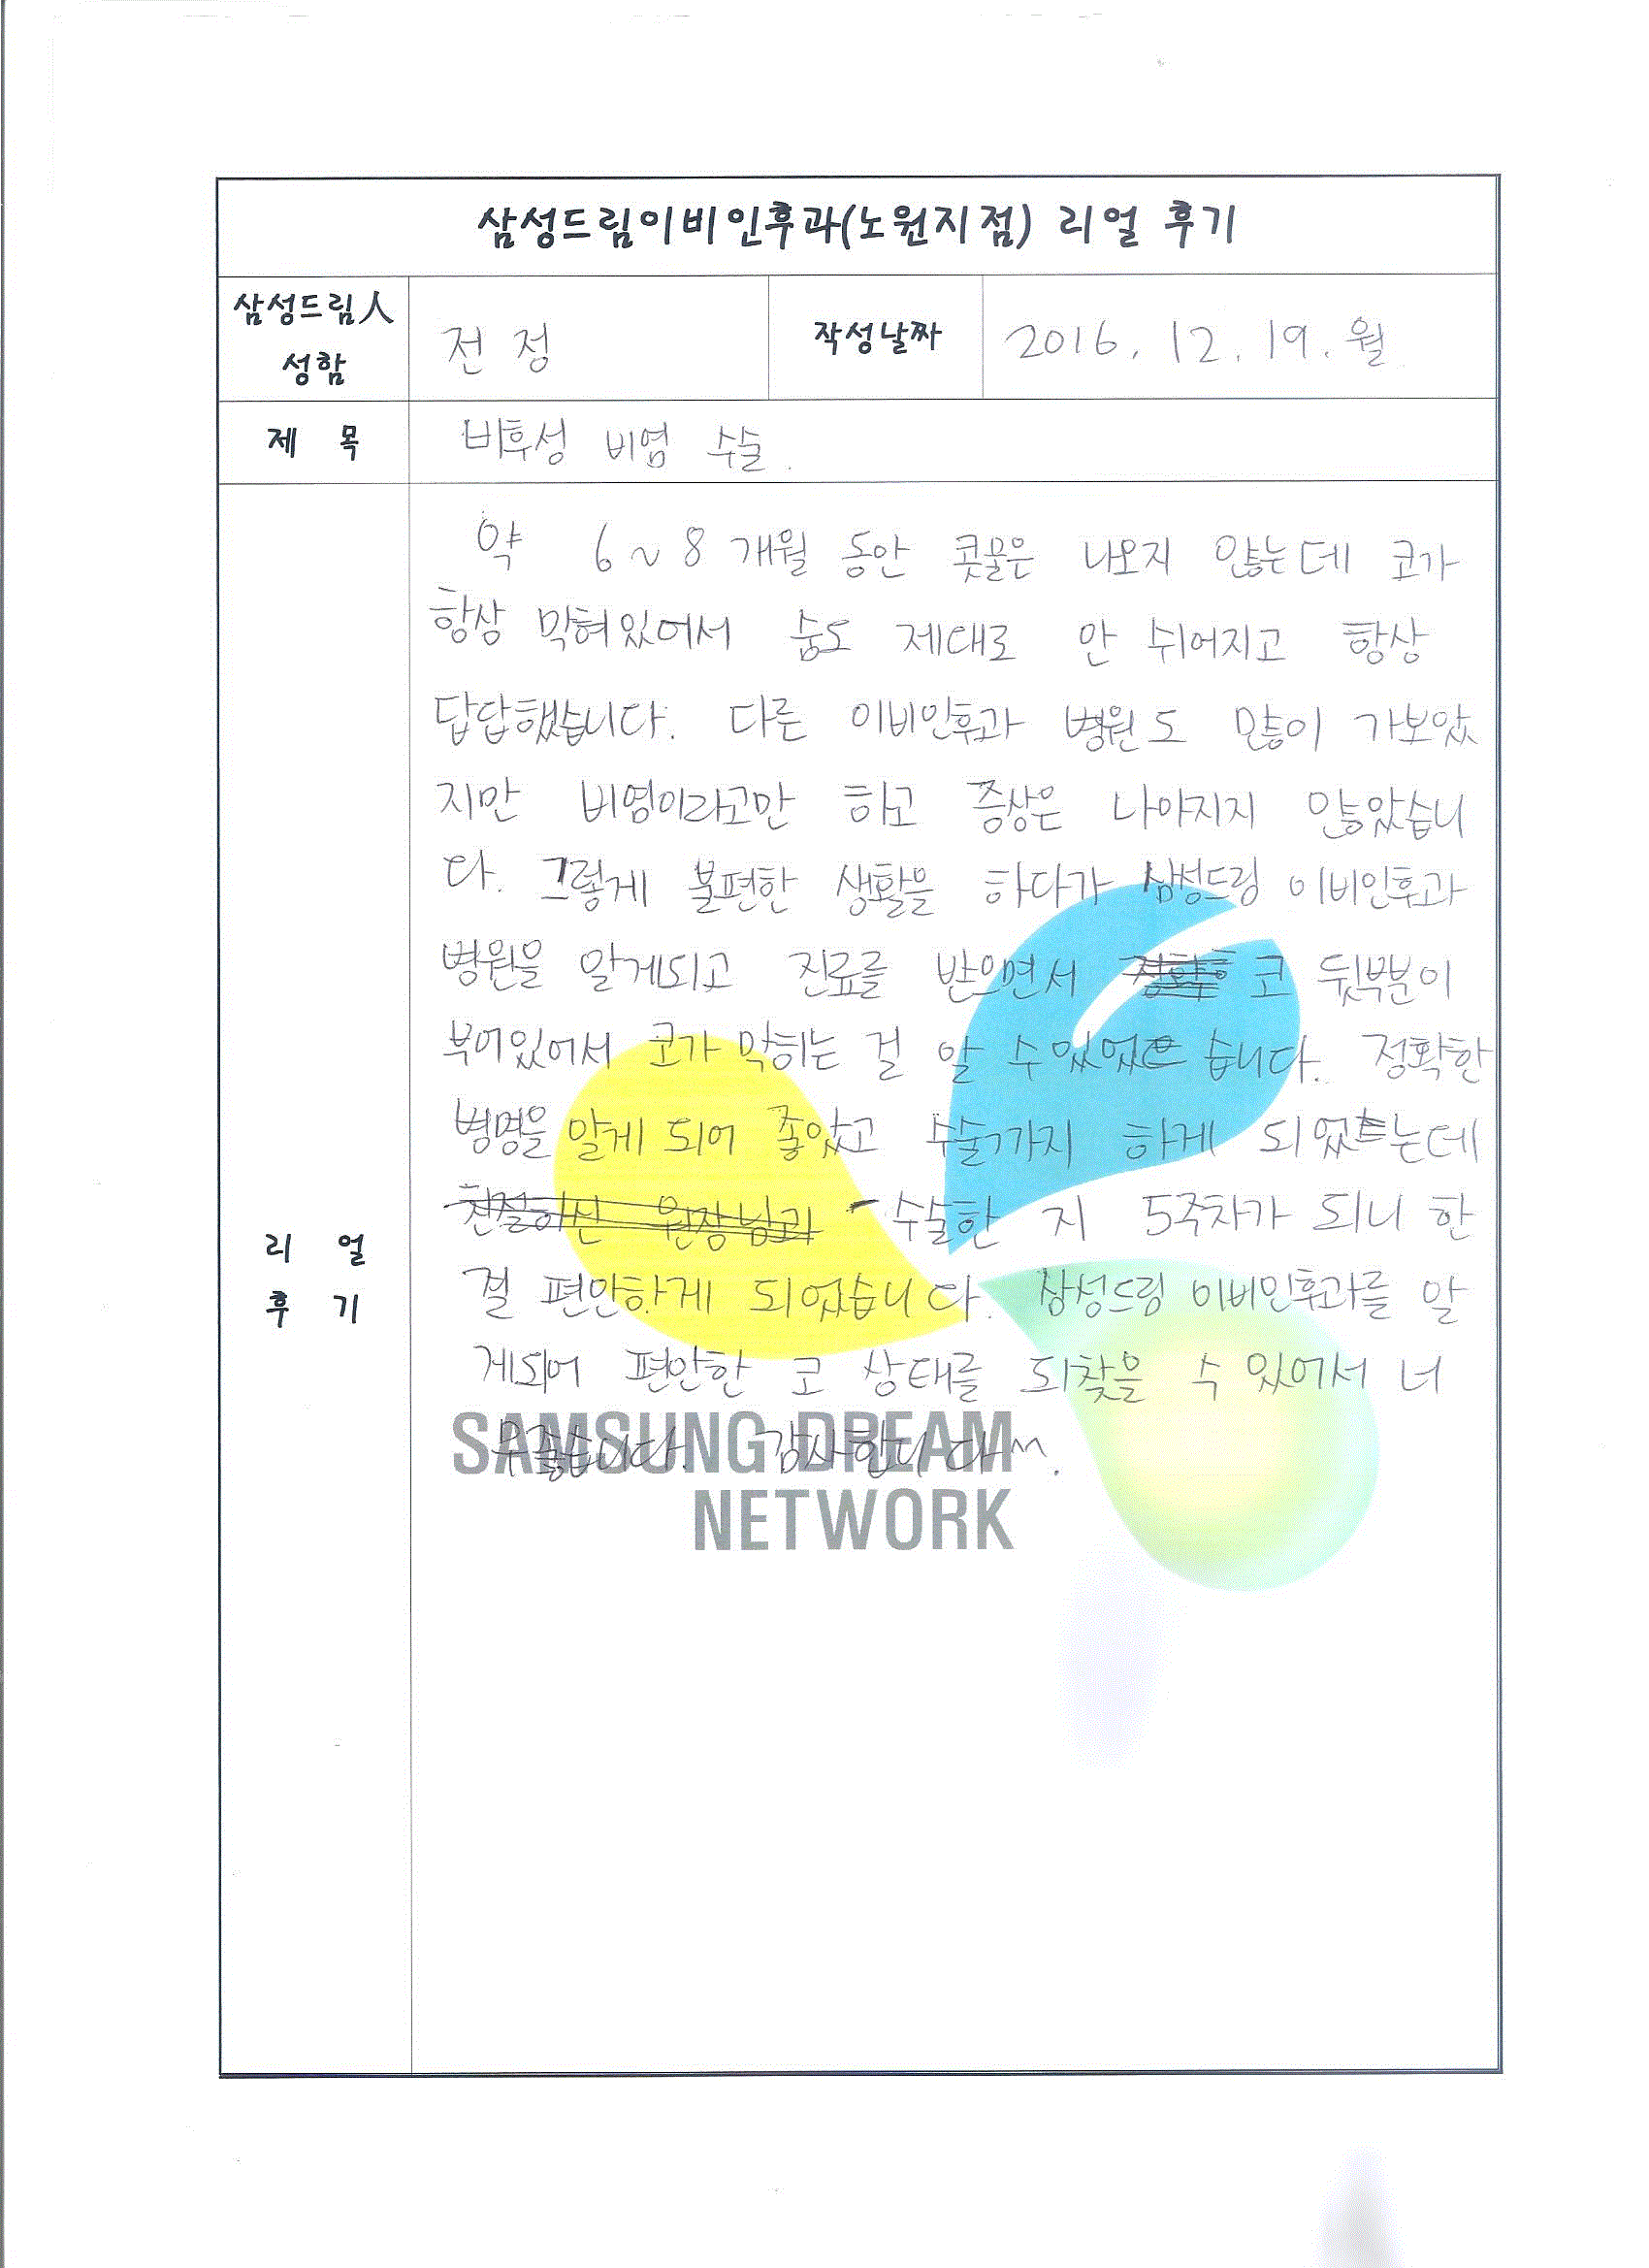 삼성드림이비인후과(노원지점) 리얼 후기
삼성드림人
성함
전 정
작성날짜
2016. 12. 19. 월
제 목
비후성 비염 수술.
리 얼
후 기
약 6~8 개월 동안 콧물은 나오지 않는데 코가
항상 막혀있어서 숨도 제대로 안 쉬어지고 항상
답답했습니다. 다른 이비인후과 병원도 많이 가보았
지만 비염이라고만 하고 증상은 나아지지 않았습니
다. 그렇게 불편한 생활을 하다가 삼성드림 이비인후과
병원을 알게되고 진료를 받으면서 코 뒷부분이
부어있어서 코가 막히는 걸 알 수있었습니다. 정확한
병명을 알게 되어 좋았고 수술까지 하게 되었는데
친절하신 원장님과 수술한 지 5주차가 되니 한
결 편안하게 되었습니다. 삼성드림 이비인후과를 알
게되어 편안한 코 상태를 되찾을 수 있어서 너
무좋습니다. 감사합니다^^.
SAMSUNG DREAM
NETWORK